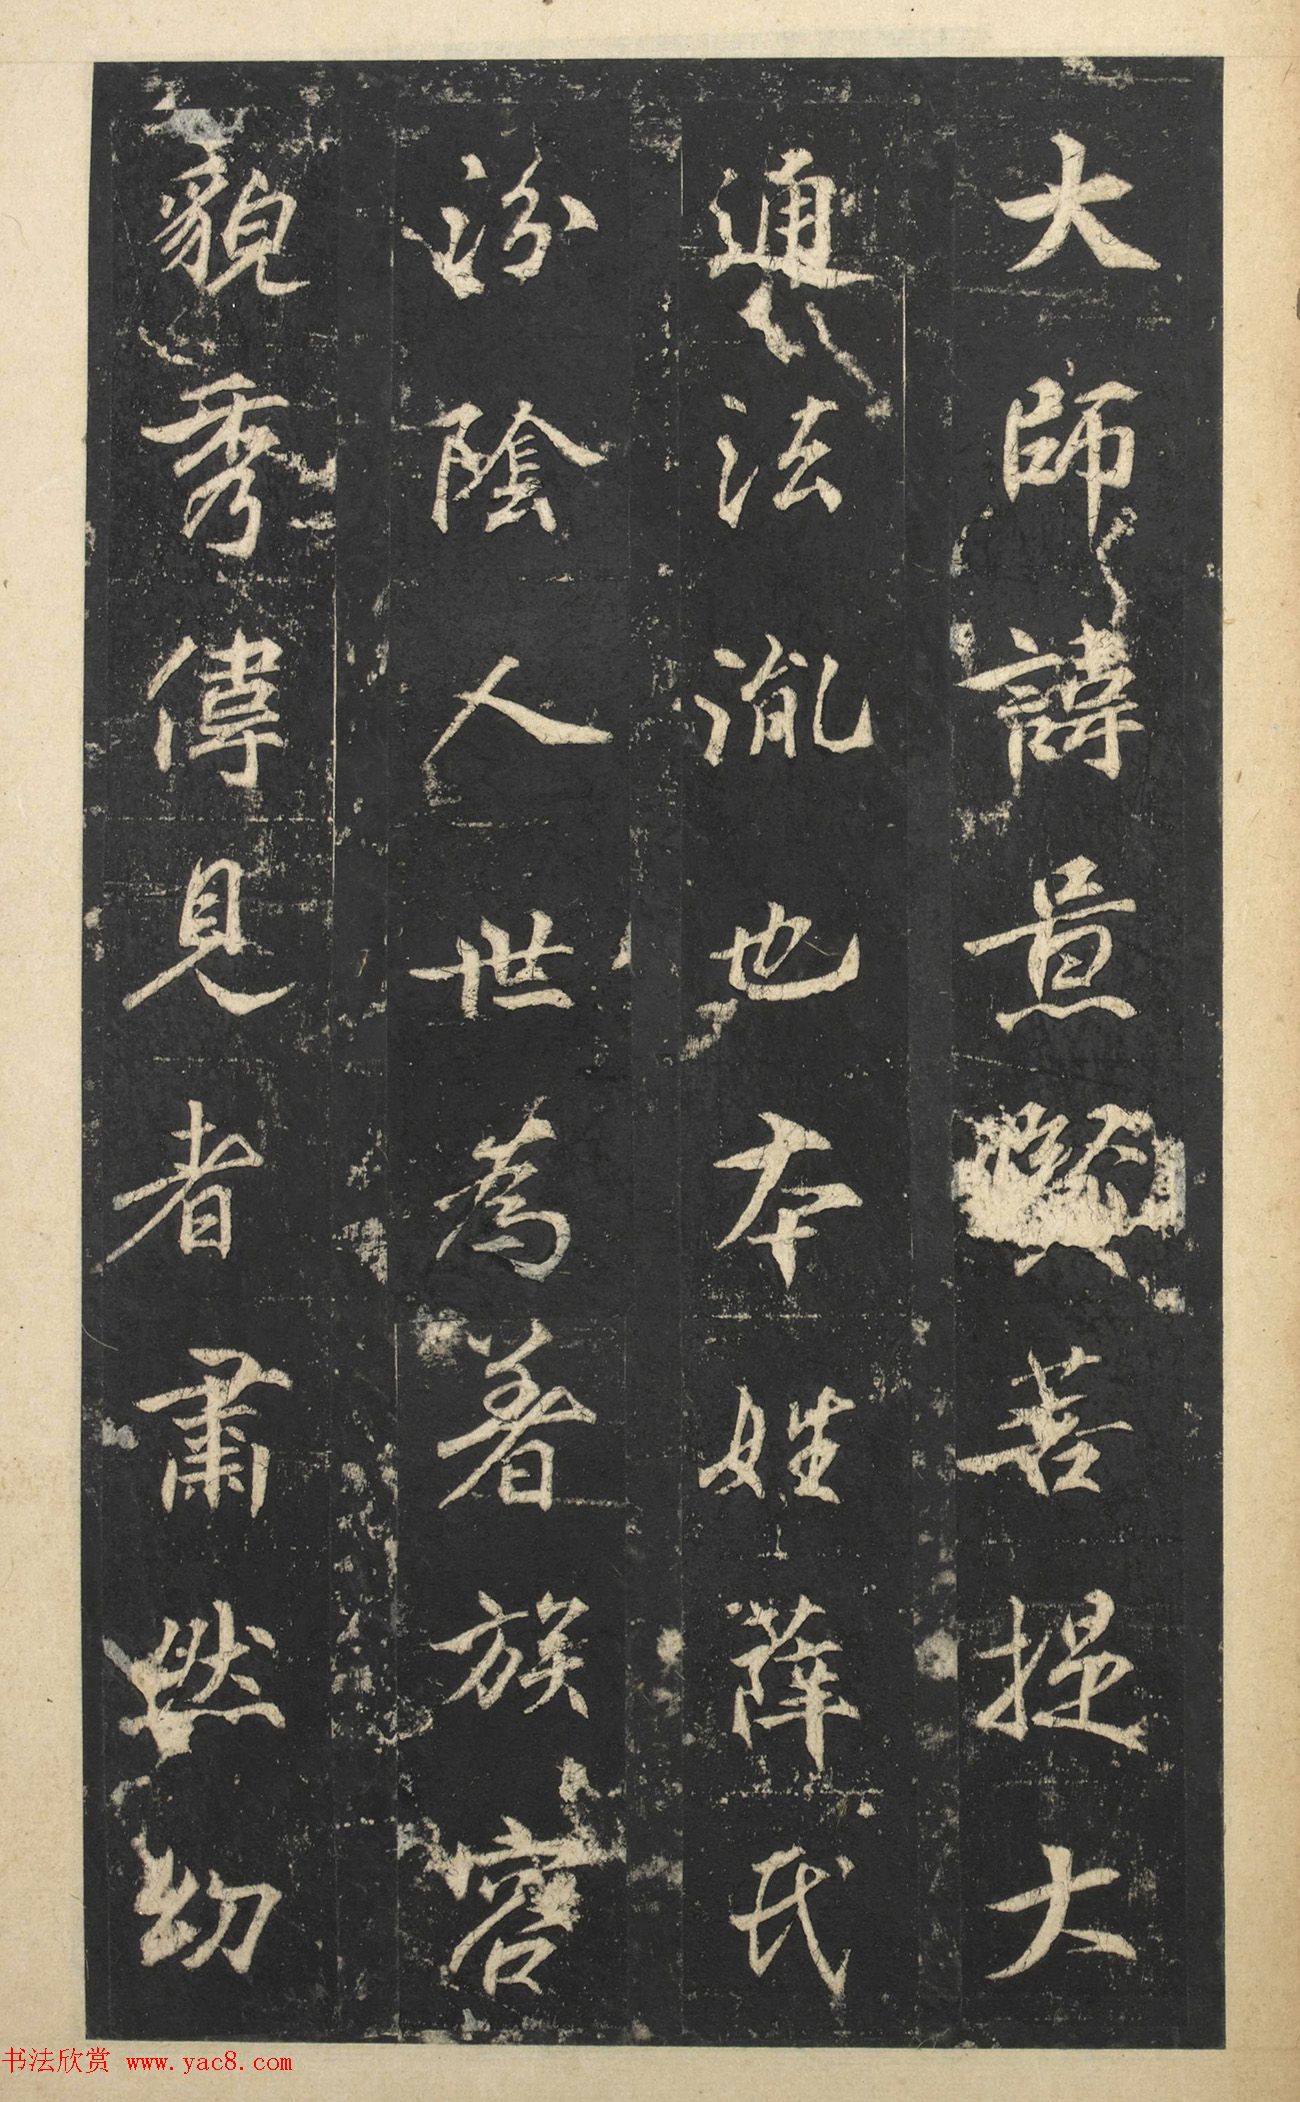 大師諱景賢菩提大
通法胤也本姓薛氏
汾陰人世為著族容
貌秀偉見者肅然幼
书法欣赏 www.yac8.com